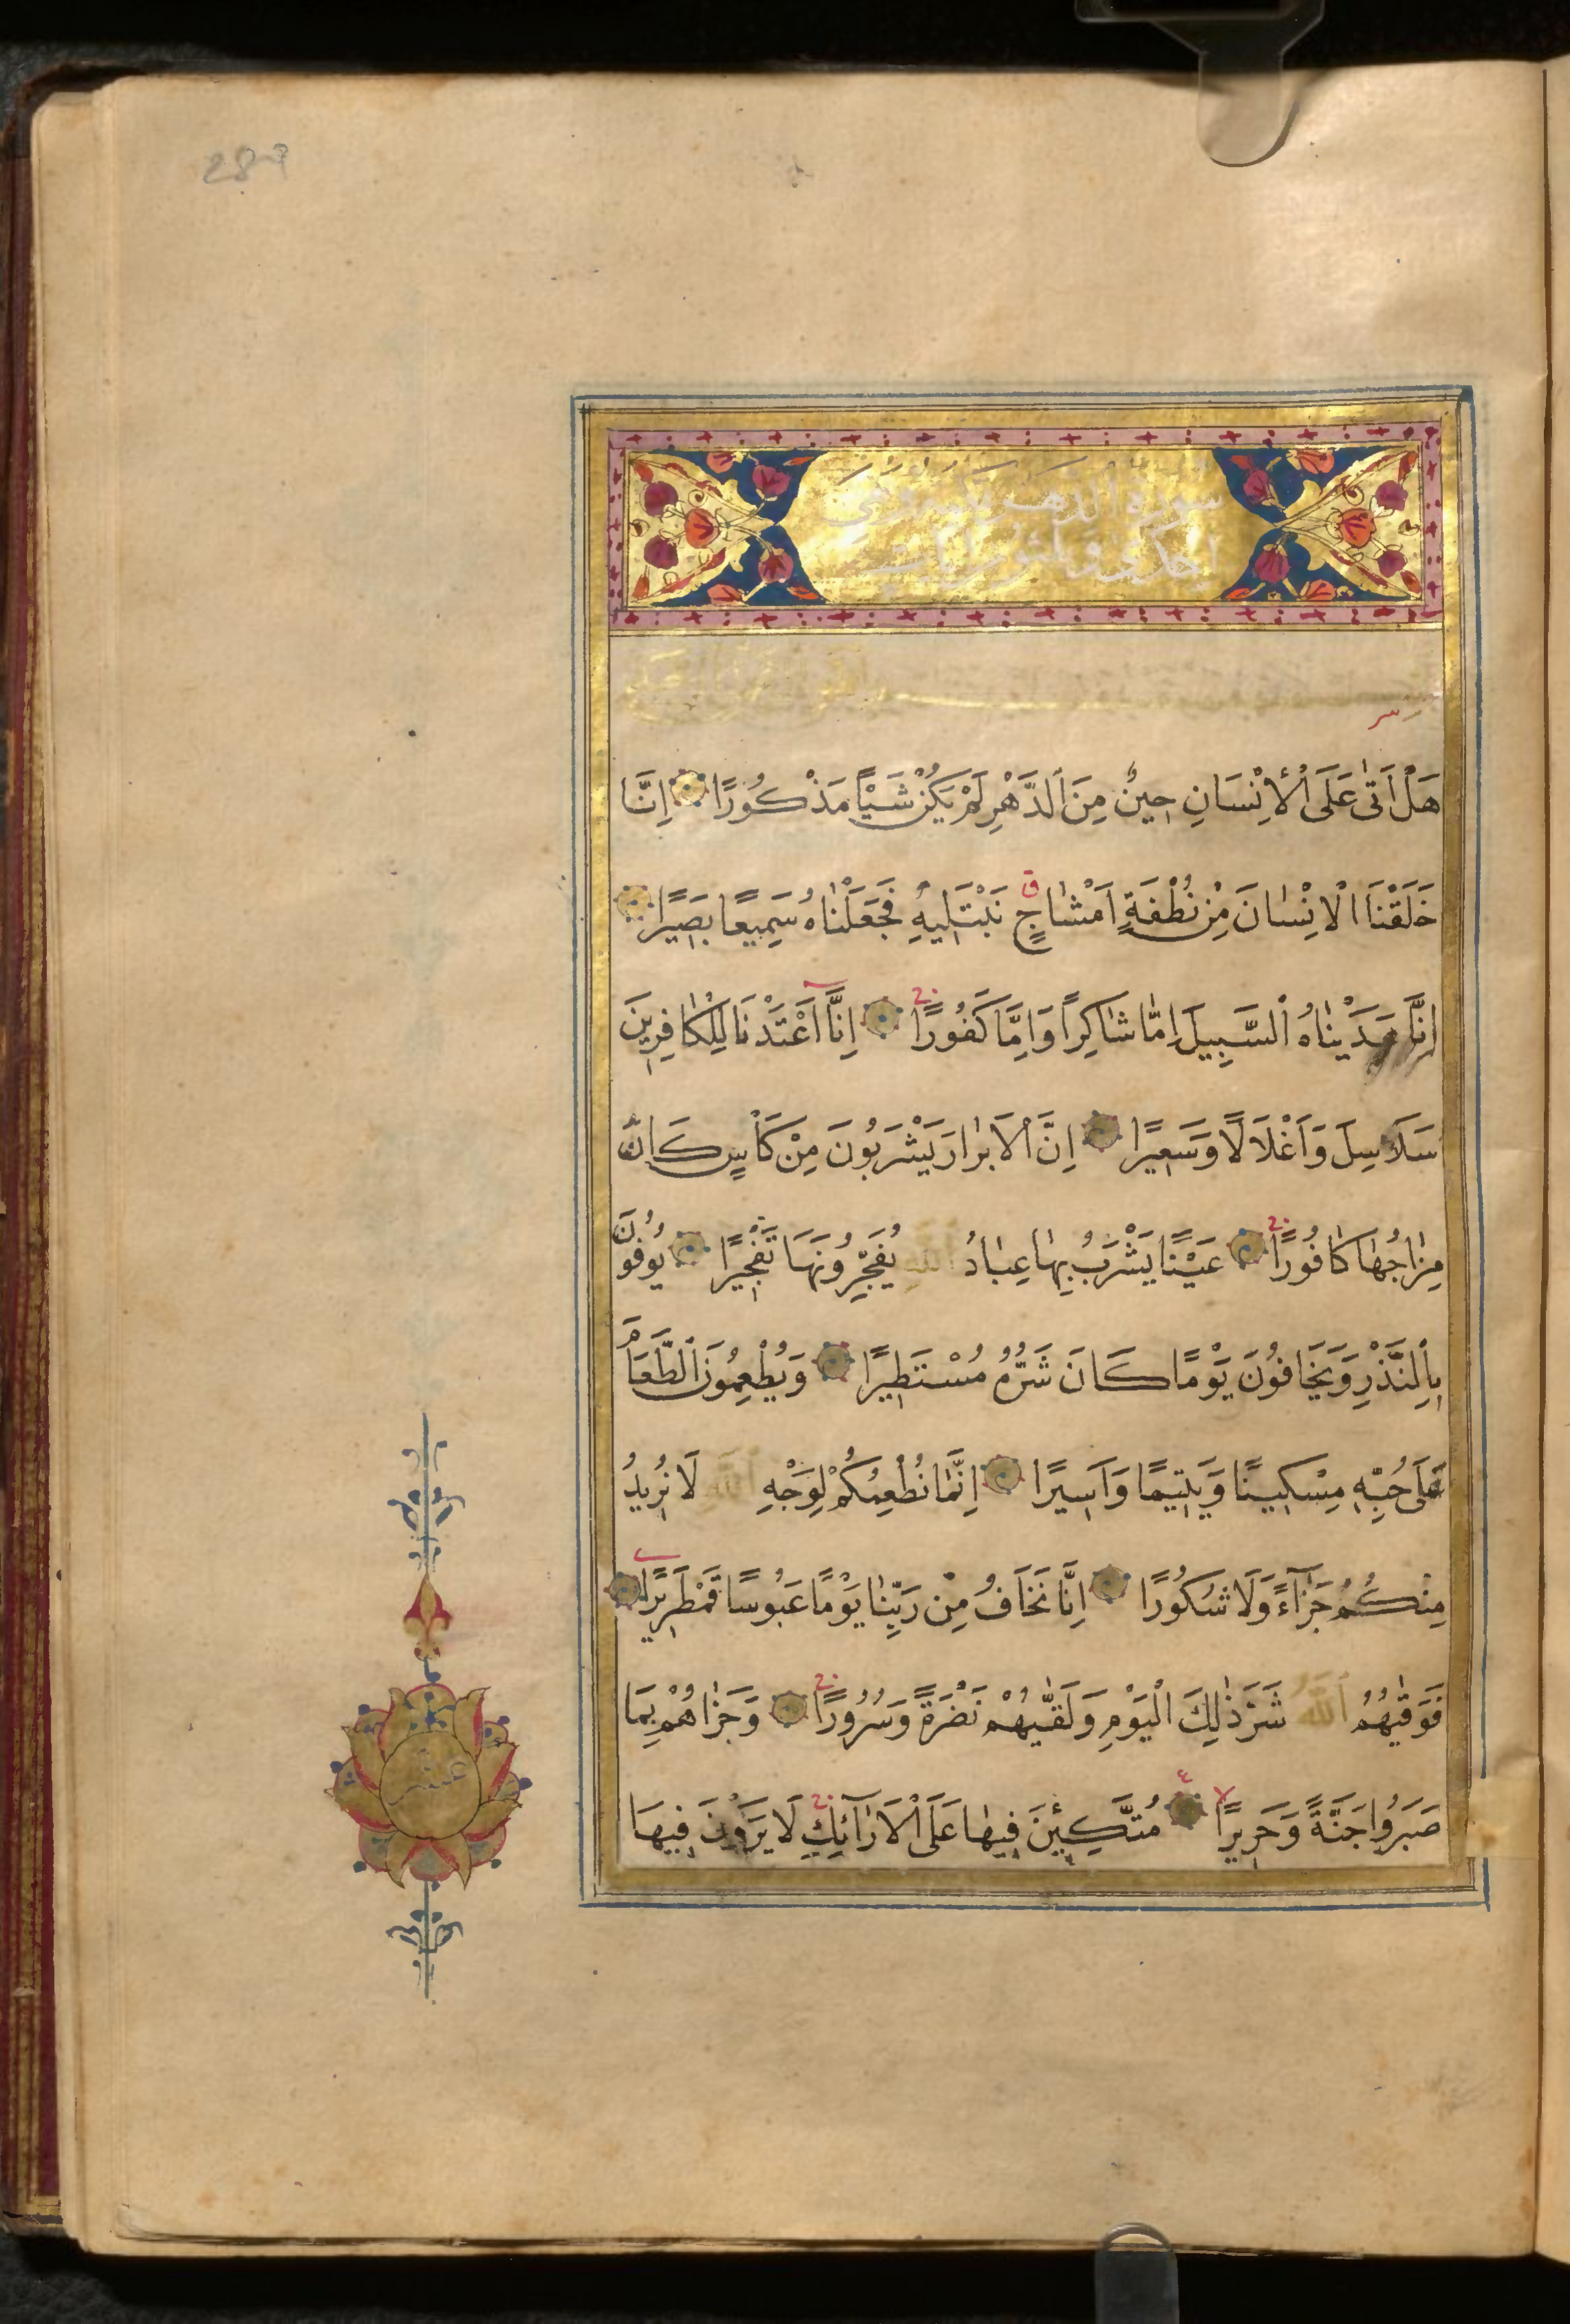 289
سورة الدهر
بسم الله الرحمن الرحيم
هَلْ اَتٰى عَلَى الْاِنْسَانِ حِينٌ مِنَ الدَّهْرِ لَمْ يَكُنْ شَيْـًٔا مَذْكُورًا اِنَّا
خَلَقْنَا الْاِنْسَانَ مِنْ نُطْفَةٍ اَمْشَاجٍ نَبْتَلِيهِ فَجَعَلْنَاهُ سَمِيعًا بَصِيرًا
اِنَّا هَدَيْنَاهُ السَّبِيلَ اِمَّا شَاكِرًا وَاِمَّا كَفُورًا اِنَّا اَعْتَدْنَا لِلْكَافِرِينَ
سَلَاسِلَ وَاَغْلَالًا وَسَعِيرًا اِنَّ الْاَبْرَارَ يَشْرَبُونَ مِنْ كَاْسٍ كَانَ
مِزَاجُهَا كَافُورًا عَيْنًا يَشْرَبُ بِهَا عِبَادُ اللّٰهِ يُفَجِّرُونَهَا تَفْجِيرًا يُوفُونَ
بِالنَّذْرِ وَيَخَافُونَ يَوْمًا كَانَ شَرُّهُ مُسْتَطِيرًا وَيُطْعِمُونَ الطَّعَامَ
عَلٰى حُبِّهِ مِسْكِينًا وَيَتِيمًا وَاَسِيرًا اِنَّمَا نُطْعِمُكُمْ لِوَجْهِ اللّٰهِ لَا نُرِيدُ
مِنْكُمْ جَزَآءً وَلَا شُكُورًا اِنَّا نَخَافُ مِنْ رَبِّنَا يَوْمًا عَبُوسًا قَمْطَرِيرًا
فَوَقٰيهُمُ اللّٰهُ شَرَّ ذٰلِكَ الْيَوْمِ وَلَقّٰيهُمْ نَضْرَةً وَسُرُورًا وَجَزَاهُمْ بِمَا
صَبَرُوا جَنَّةً وَحَرِيرًا مُتَّكِـِٔينَ فِيهَا عَلَى الْاَرَآئِكِ لَا يَرَوْنَ فِيهَا
عشر